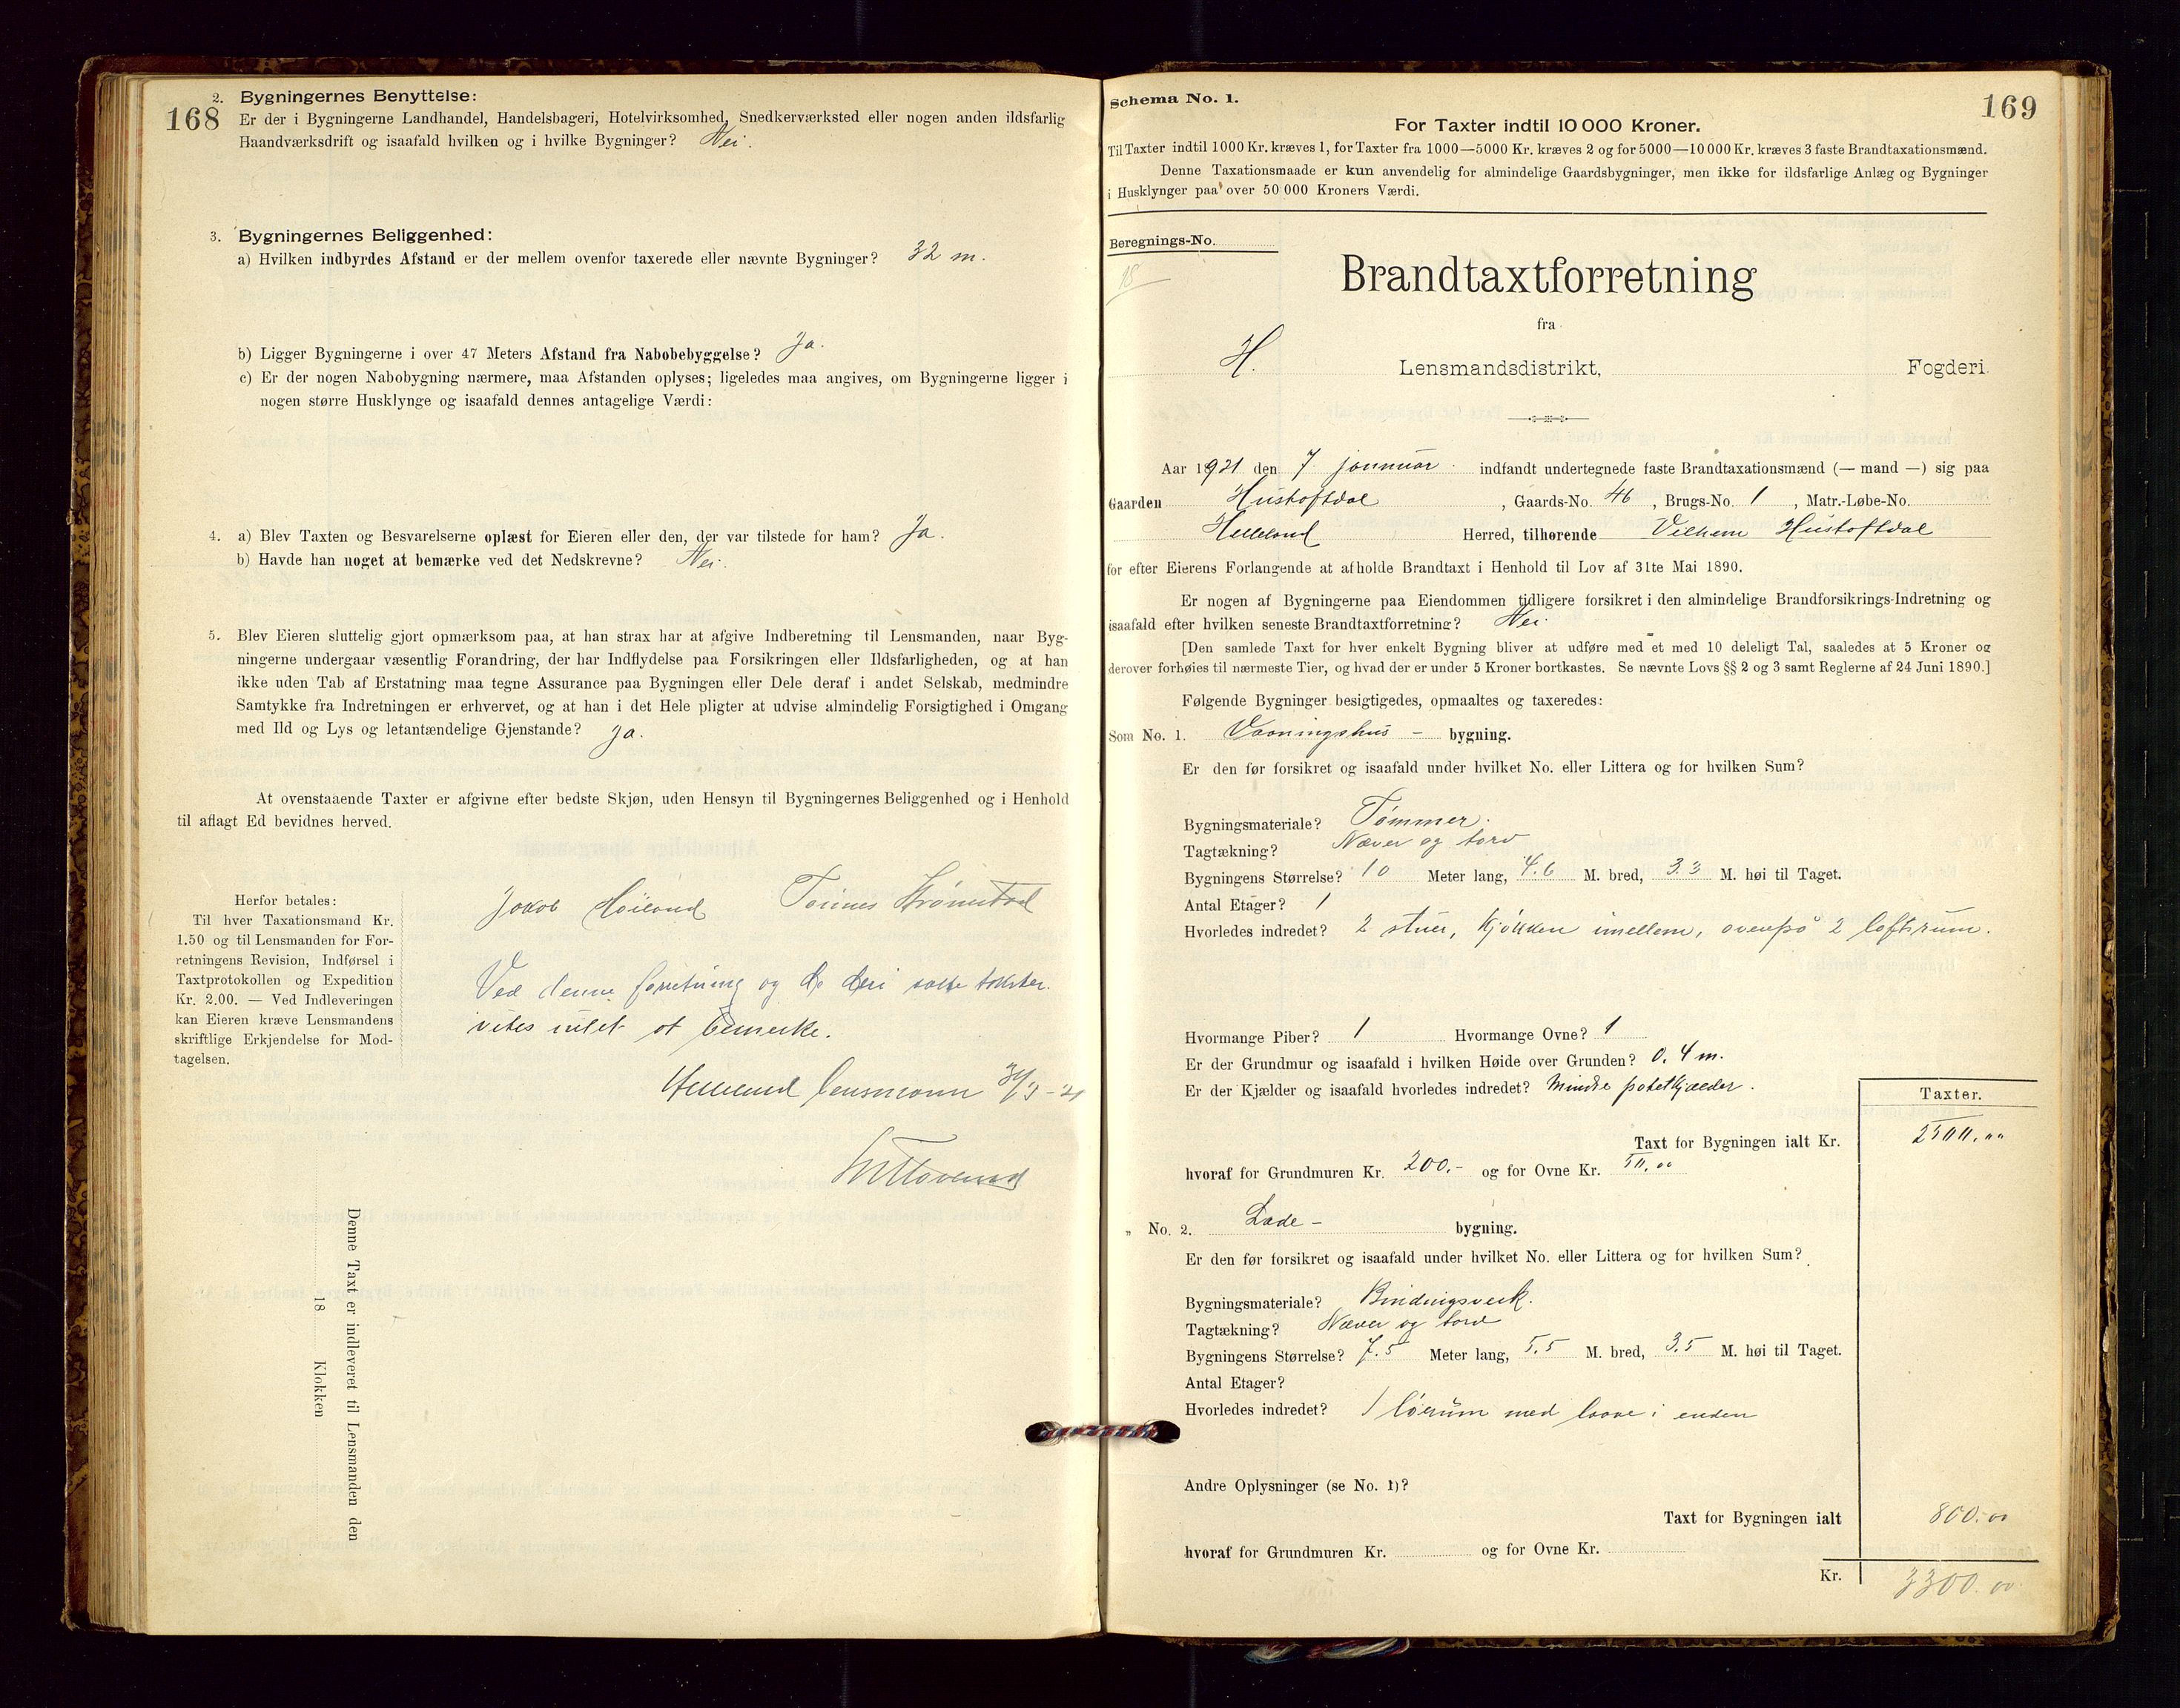 168
2. Bygningernes Benyttelse:
Er der i Bygningerne Landhandel, Handelsbageri, Hotelvirksomhed, Snedkerværksted eller nogen anden ildsfarlig
Haandværksdrift og isaafald hvilken og i hvilke Bygninger? Nei.
3. Bygningernes Beliggenhed:
a) Hvilken indbyrdes Afstand er der mellem ovenfor taxerede eller nævnte Bygninger? 32 m.
b) Ligger Bygningerne i over 47 Meters Afstand fra Nabobebyggelse? Ja.
c) Er der nogen Nabobygning nærmere, maa Afstanden oplyses; ligeledes maa angives, om Bygningerne ligger i
nogen større Husklynge og isaafald dennes antagelige Værdi:
4. a) Blev Taxten og Besvarelserne oplæst for Eieren eller den, der var tilstede for ham? Ja.
b) Havde han noget at bemærke ved det Nedskrevne? Nei.
5. Blev Eieren sluttelig gjort opmærksom paa, at han strax har at afgive Indberetning til Lensmanden, naar Byg-
ningerne undergaar væsentlig Forandring, der har Indflydelse paa Forsikringen eller Ildsfarligheden, og at han
ikke uden Tab af Erstatning maa tegne Assurance paa Bygningen eller Dele deraf i andet Selskab, medmindre
Samtykke fra Indretningen er erhvervet, og at han i det Hele pligter at udvise almindelig Forsigtighed i Omgang
med Ild og Lys og letantændelige Gjenstande? Ja.
At ovenstaaende Taxter er afgivne efter bedste Skjøn, uden Hensyn til Bygningernes Beliggenhed og i Henhold
til aflagt Ed bevidnes herved.
Jakob Høiland Tønnes
Herfor betales:
Til hver Taxationsmand Kr.
1.50 og til Lensmanden for For-
retningens Revision, Indførsel i
Taxtprotokollen og Expedition
Kr. 2.00. — Ved Indleveringen
kan Eieren kræve Lensmandens
skriftlige Erkjendelse for Mod-
tagelsen.
Ved denne forretning og de deri satte takster
vites intet at bemerke.
Helleland lensmann 31/3-21
Denne Taxt er indleveret til Lensmanden den
18 Klokken
Schema No. 1.
169
For Taxter indtil 10 000 Kroner.
Til Taxter indtil 1000 Kr. kræves 1, for Taxter fra 1000—5000 Kr. kræves 2 og for 5000—10 000 Kr. kræves 3 faste Brandtaxationsmænd.
Denne Taxationsmaade er kun anvendelig for almindelige Gaardsbygninger, men ikke for ildsfarlige Anlæg og Bygninger
i Husklynger paa over 50 000 Kroners Værdi.
Beregnings-No.
18
Brandtaxtforretning
fra
H. Lensmandsdistrikt, Fogderi.
Aar 1921 den 7 januar indfandt undertegnede faste Brandtaxationsmænd (— mand —) sig paa
Gaarden Hustoftdal, Gaards-No. 46, Brugs-No. 1, Matr.-Løbe-No.
Helleland Herred, tilhørende Vilhem Hustoftdal
for efter Eierens Forlangende at afholde Brandtaxt i Henhold til Lov af 31te Mai 1890.
Er nogen af Bygningerne paa Eiendommen tidligere forsikret i den almindelige Brandforsikrings-Indretning og
isaafald efter hvilken seneste Brandtaxtforretning? Nei.
[Den samlede Taxt for hver enkelt Bygning bliver at udføre med et med 10 deleligt Tal, saaledes at 5 Kroner og
derover forhøies til nærmeste Tier, og hvad der er under 5 Kroner bortkastes. Se nævnte Lovs §§ 2 og 3 samt Reglerne af 24 Juni 1890.]
Følgende Bygninger besigtigedes, opmaaltes og taxeredes:
Som No. 1. Vaaningshus - bygning.
Er den før forsikret og isaafald under hvilket No. eller Littera og for hvilken Sum?
Bygningsmateriale? Tømmer.
Tagtækning? Næver og torv
Bygningens Størrelse? 10 Meter lang, 4.6 M. bred, 3.3 M. høi til Taget.
Antal Etager? 1
Hvorledes indredet? 2 stuer, kjøkken imellem, ovenpå 2 loftsrum.
Hvormange Piber? 1 Hvormange Ovne? 1
Er der Grundmur og isaafald i hvilken Høide over Grunden? 0.4 m.
Er der Kjælder og isaafald hvorledes indredet? Mindre potetkjælder.
Taxter.
Taxt for Bygningen ialt Kr. 2500.00
hvoraf for Grundmuren Kr. 200.- og for Ovne Kr. 50.00
" No. 2. Lade - bygning.
Er den før forsikret og isaafald under hvilket No. eller Littera og for hvilken Sum?
Bygningsmateriale? Bindingsverk.
Tagtækning? Næver og torv
Bygningens Størrelse? 7.5 Meter lang, 5.5 M. bred, 3.5 M. høi til Taget.
Antal Etager?
Hvorledes indredet? 1 lørum med laave i enden
Andre Oplysninger (se No. 1)?
Taxt for Bygningen ialt 800.00
hvoraf for Grundmuren Kr. og for Ovne Kr.
Kr. 3300.00